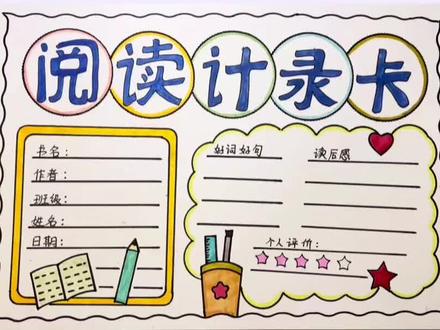 阅读计录卡
书名：
作者：
班级：
姓名：
日期：
好词好句
读后感
个人评价：